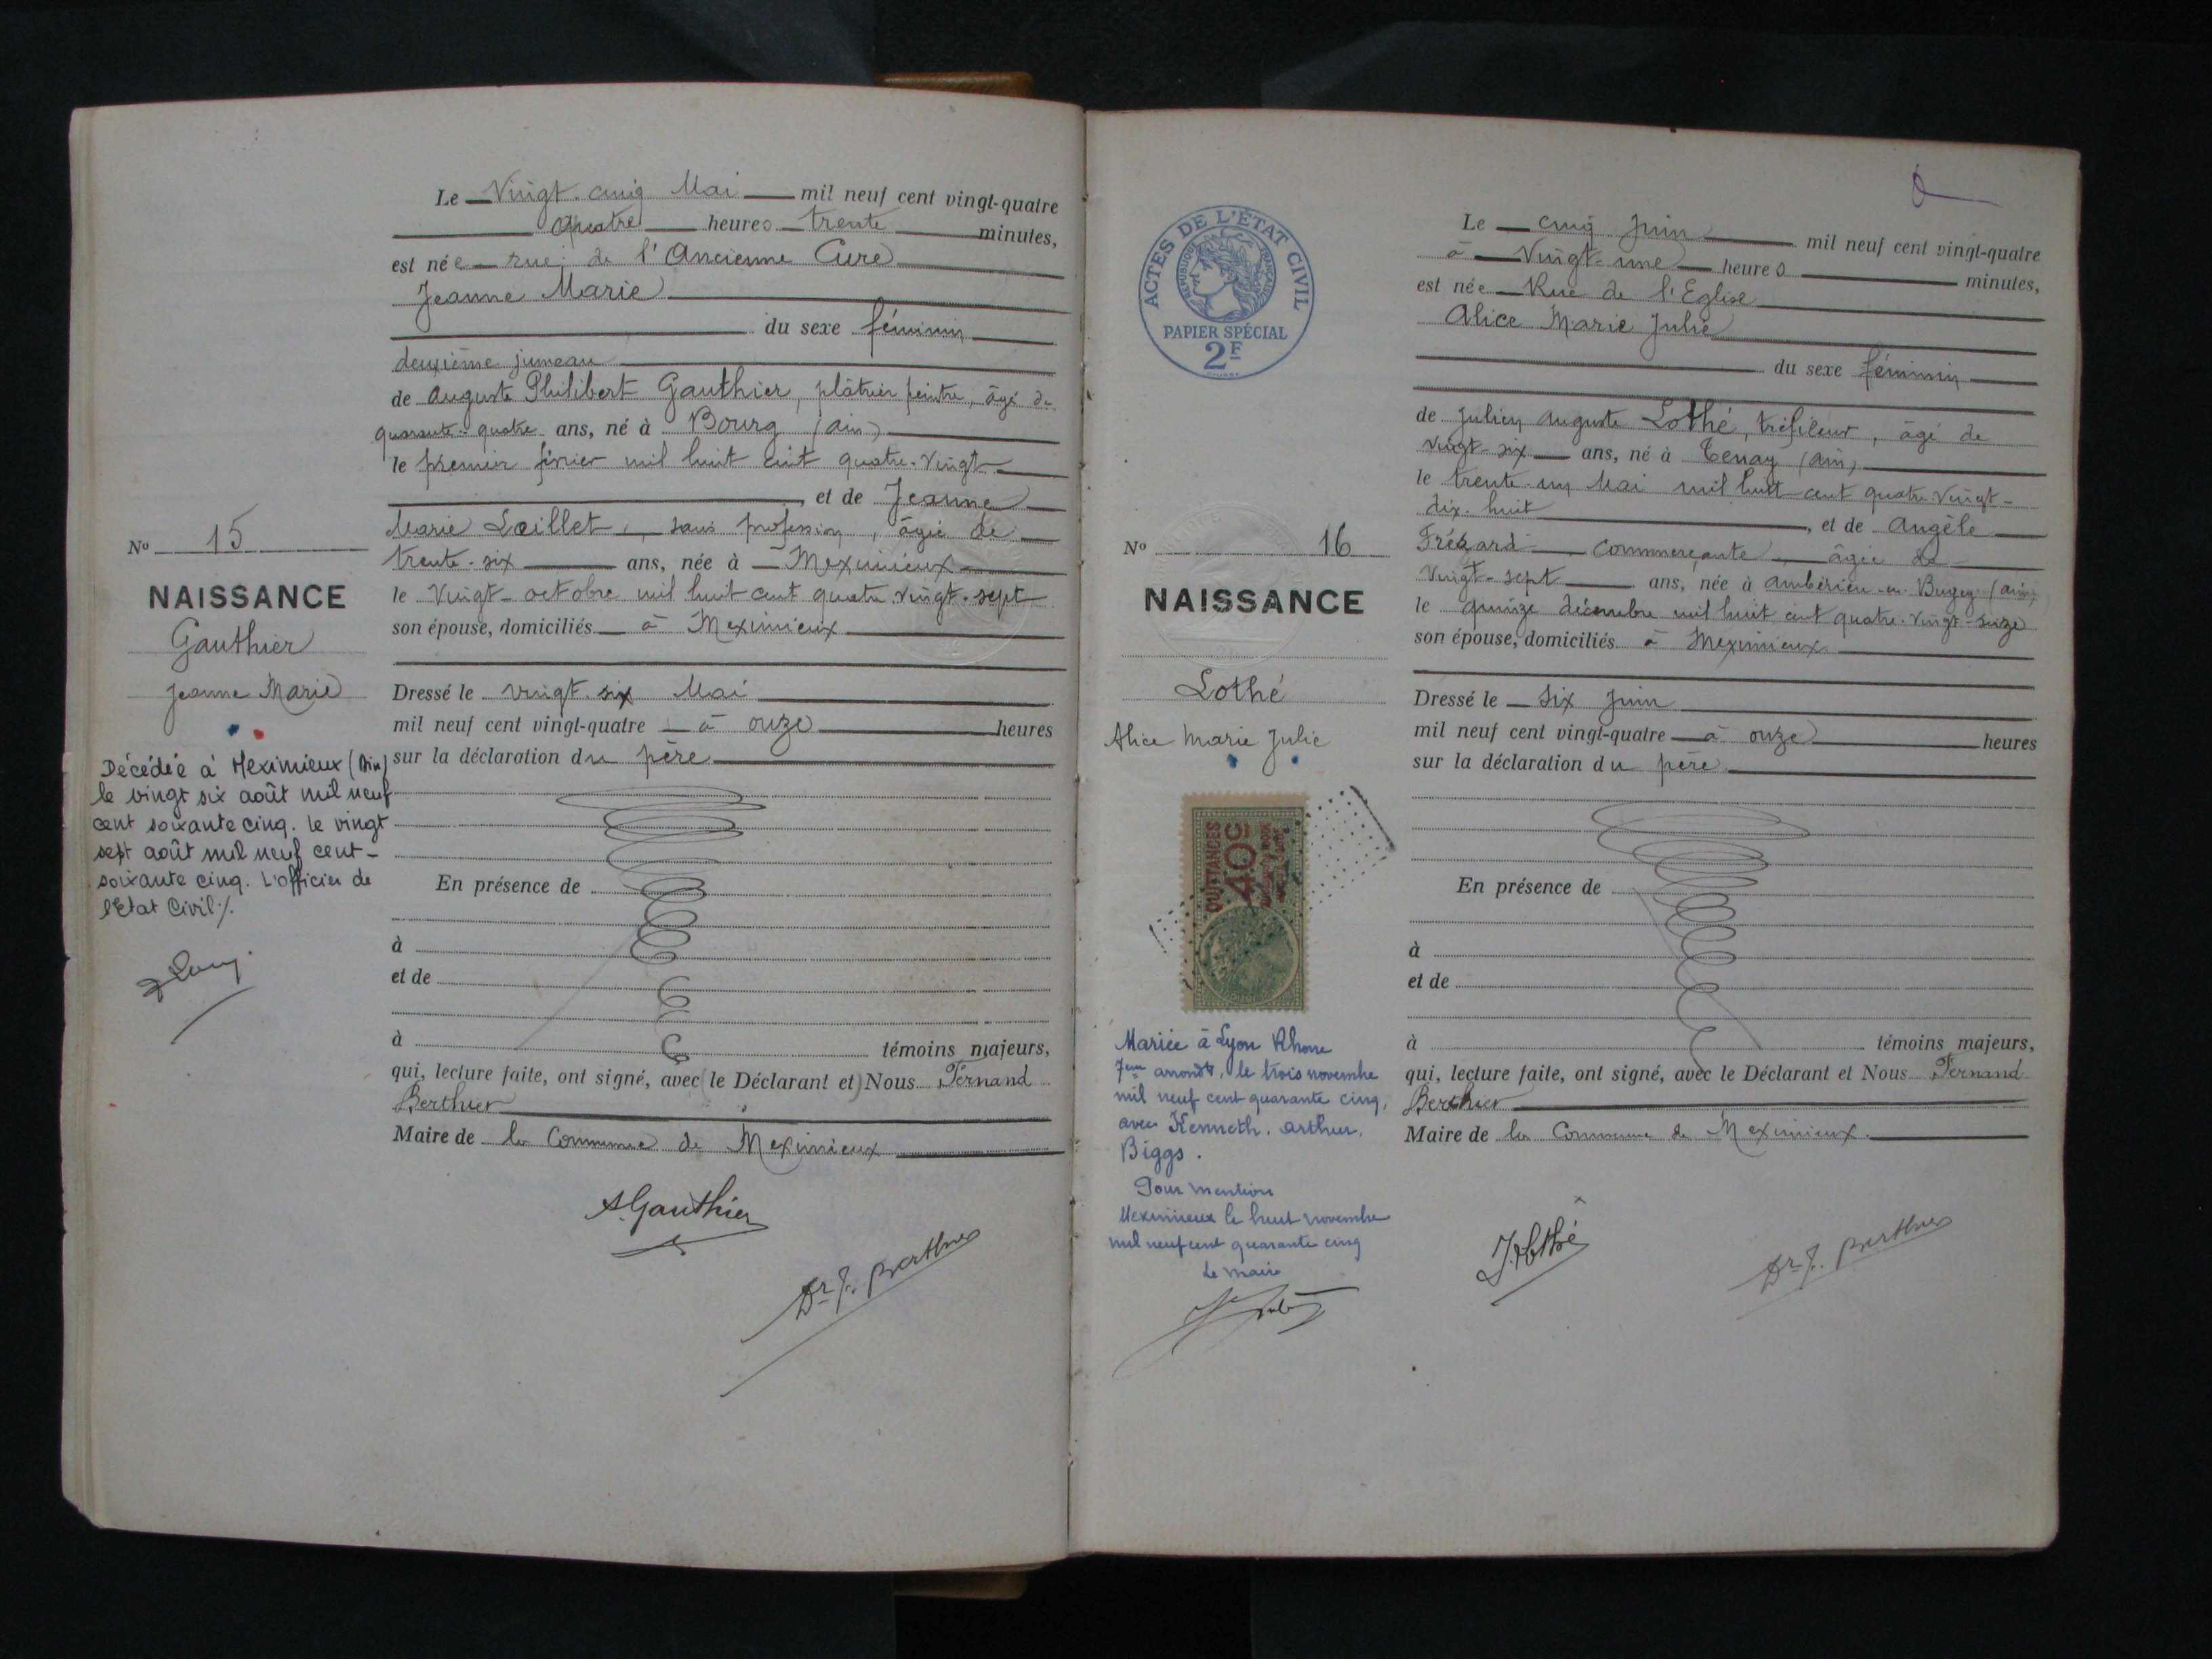 Le Vingt-cinq Mai mil neuf cent vingt-quatre
quatre heures trente minutes,
est née rue de l'Ancienne Cure
Jeanne Marie
du sexe féminin
deuxième jumeau
de Auguste Philibert Gauthier, plâtrier peintre, âgé de
quarante-quatre ans, né à Bourg (ain)
le premier février mil huit cent quatre-vingt
, et de Jeanne
Marie Lœillet, sans profession, âgée de
trente-six ans, née à Meximieux
le Vingt octobre mil huit cent quatre-vingt-sept
son épouse, domiciliés à Meximieux
Dressé le vingt-six Mai
mil neuf cent vingt-quatre à onze heures
sur la déclaration du père
En présence de
à
et de
à témoins majeurs,
qui, lecture faite, ont signé, avec (le Déclarant et) Nous Fernand
Berthier
Maire de la Commune de Meximieux
A. Gauthier
Dr F. Berthier
No 15
NAISSANCE
Gauthier
Jeanne Marie
Décédée à Meximieux (Ain)
le vingt six août mil neuf
cent soixante cinq. Le vingt
sept août mil neuf cent-
soixante cinq. L'officier de
l'Etat Civil ./.
ACTES DE L'ÉTAT CIVIL
RÉPUBLIQUE FRANÇAISE
PAPIER SPÉCIAL
2F
No 16
NAISSANCE
Lothé
Alice Marie Julie
QUITTANCES
40c
Mariée à Lyon Rhone
7eme arrondt, le trois novembre
mil neuf cent quarante cinq,
avec Kenneth. arthur.
Biggs.
Pour mention
Meximieux le huit novembre
mil neuf cent quarante cinq
Le maire
Le cinq Juin mil neuf cent vingt-quatre
à Vingt-une heures minutes,
est née Rue de l'Eglise
Alice Marie Julie
du sexe féminin
de Julien Auguste Lothé, tréfileur, âgé de
vingt-six ans, né à Tenay (ain)
le trente-un Mai mil huit cent quatre-vingt-
dix-huit, et de Angèle
commerçante, âgée de
Vingt-sept ans, née à Ambérieu-en-Bugey (ain)
le quinze décembre mil huit cent quatre-vingt-seize
son épouse, domiciliés à Meximieux
Dressé le six Juin
mil neuf cent vingt-quatre à onze heures
sur la déclaration du père
En présence de
à
et de
à témoins majeurs,
qui, lecture faite, ont signé, avec le Déclarant et Nous Fernand
Berthier
Maire de la Commune de Meximieux.
J. Lothé
Dr F. Berthier